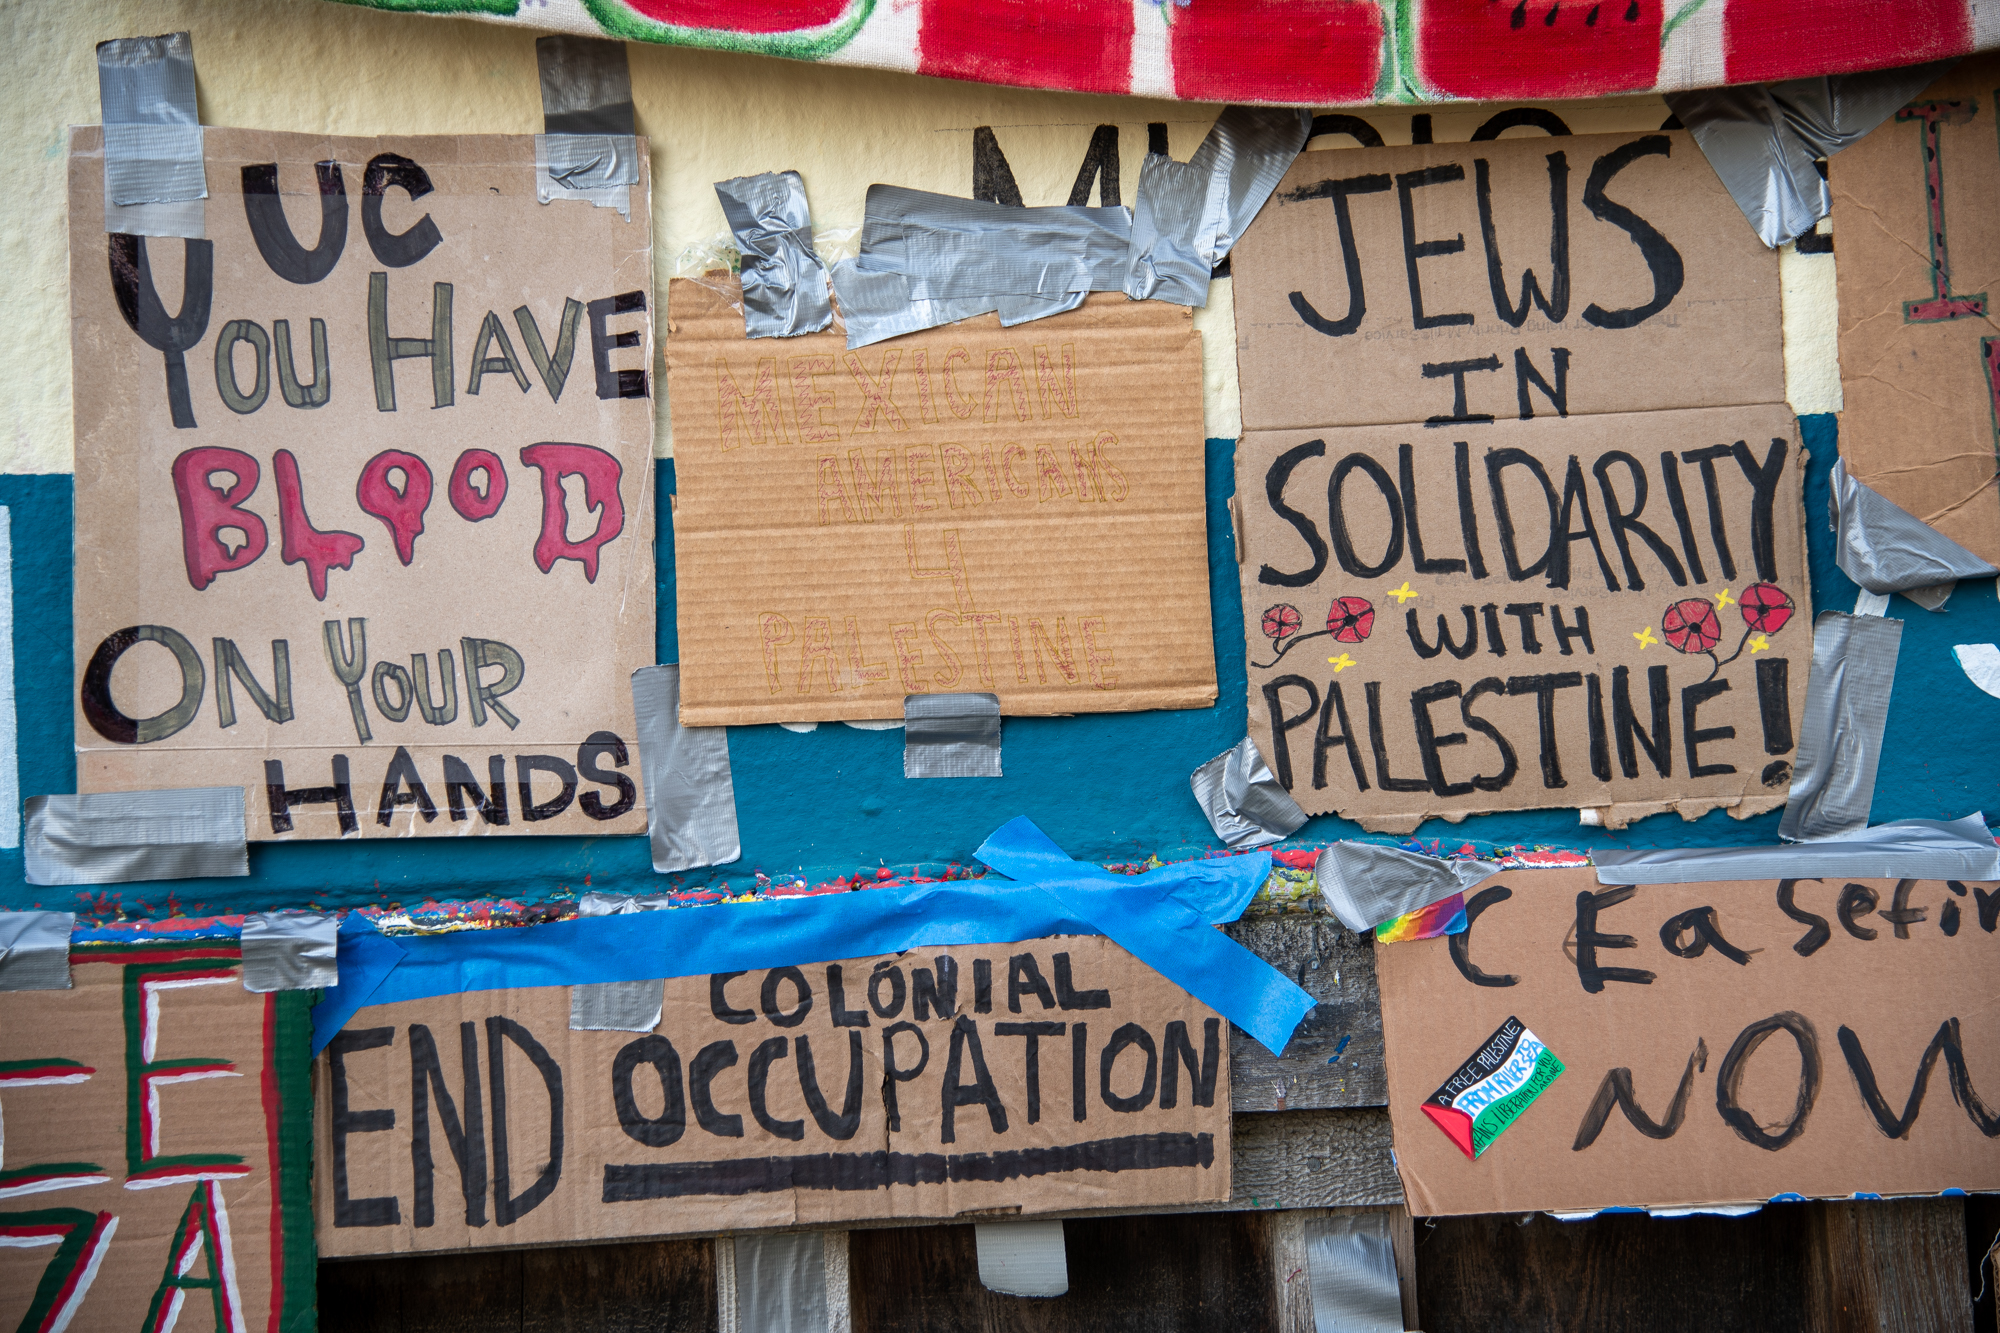 UC
YOU HAVE
BLOOD
ON YOUR
HANDS
MEXICAN
AMERICANS
4
PALESTINE
JEWS
IN
SOLIDARITY
WITH
PALESTINE!
END COLONIAL
OCCUPATION
CEasefir
NOW
A FREE PALESTINE
FROM RIVER 2 SEA
TRANS LIBERATION FOR YOU
AND ME
E
ZA